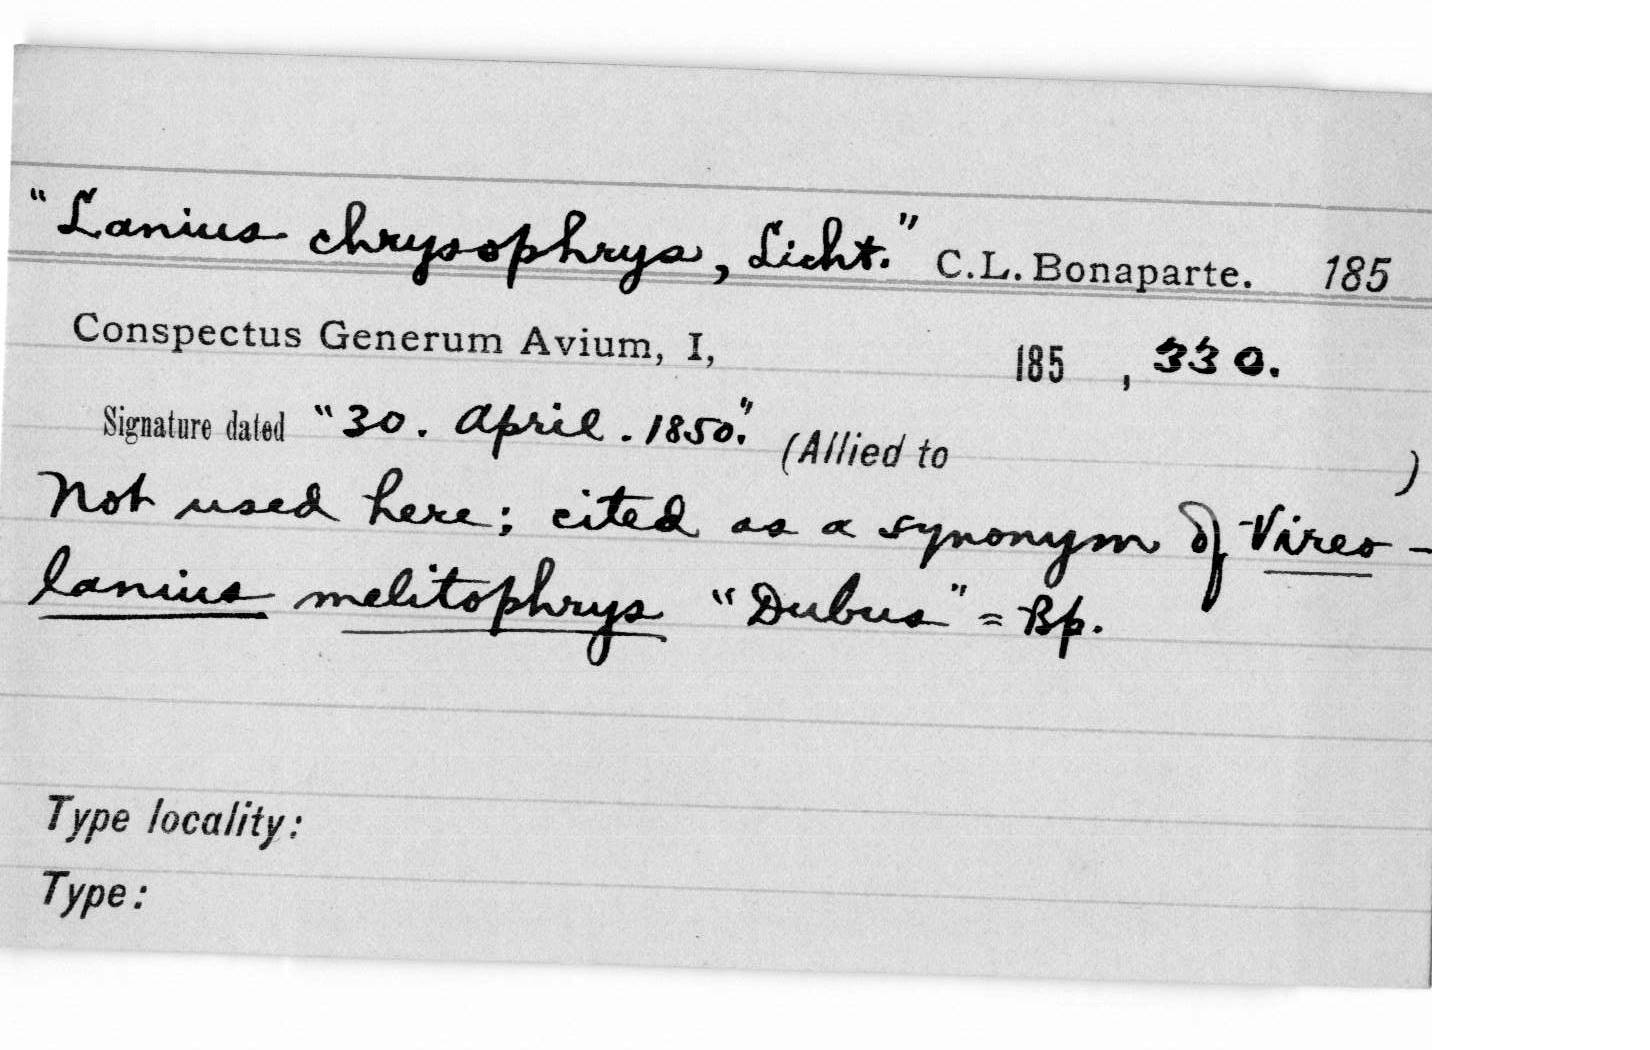 "Lanius chrysophrys, Licht." C.L. Bonaparte. 185
Conspectus Generum Avium, I, 185 , 330.
Signature dated "30. April. 1850." (Allied to )
Not used here; cited as a synonym of Vireo-
lanius melitophrys "Dubus" = Bp.
Type locality:
Type: